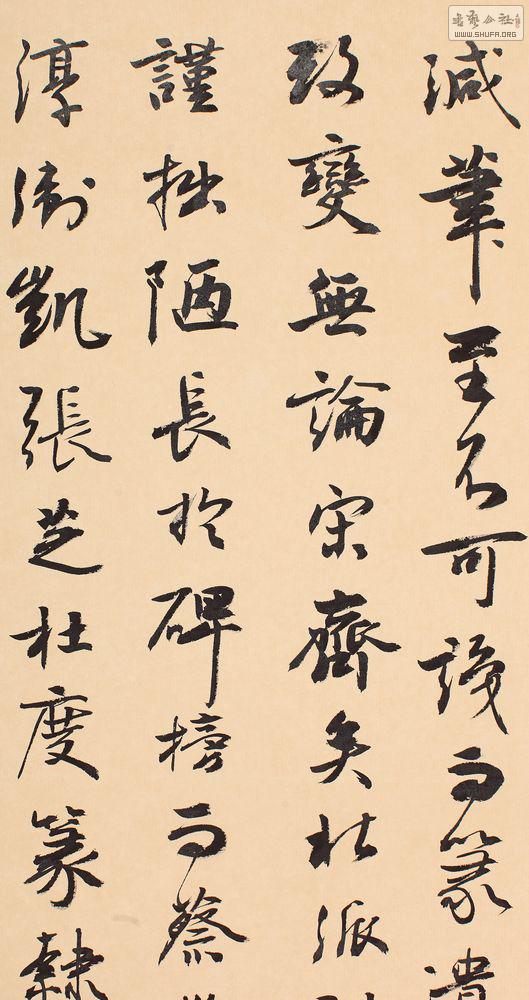 減筆至不可識而篆遺
改變無論宋齊矣北派
謹拙陋長於碑榜而蔡
淳衛凱張芝杜度篆隸
書藝公社
WWW.SHUFA.ORG